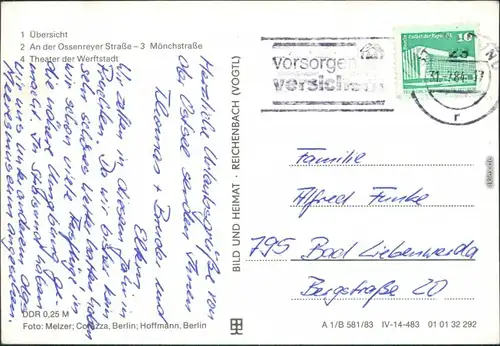 1 Übersicht
2 An der Ossenreyer Straße – 3 Mönchstraße
4 Theater der Werftstadt
Herzliche Urlaubsgrüße von
der Ostsee senden Ihnen
Thomas + Bruder und
Eltern
Wir zelten in diesem Jahr in
Da wir bisher kein
sehr schönes Wetter hatten, haben
wir schon viele Ausflüge in
die nähere Umgebung ge-
macht. In Stralsund haben
wir uns unter anderem das
Meeresmuseum angesehen.
DDR 0,25 M
Foto: Melzer; Corazza, Berlin; Hoffmann, Berlin
BILD UND HEIMAT · REICHENBACH (VOGTL)
vorsorgen
versichern
DDR
10
31.-7.84-17
r
Familie
Alfred Funke
795 Bad Liebenwerda
Bergstraße 20
A 1/B 581/83 IV-14-483 01 01 32 292